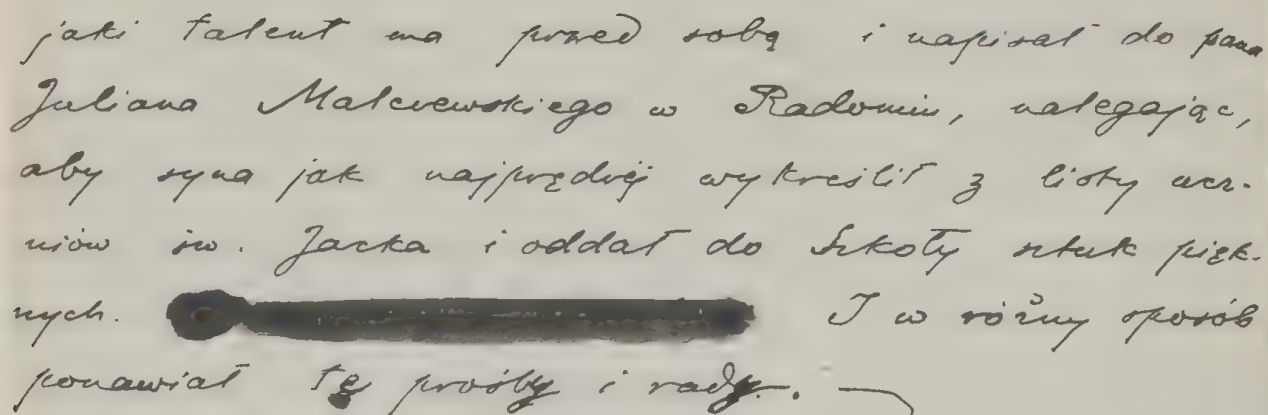 jaki talent ma przed sobą i napisał do pana
Juliana Malczewskiego w Radomiu, nalegając,
aby syna jak najprędzej wykreślił z listy ucz-
niów św. Jacka i oddał do Szkoły sztuk pięk-
nych. I w różny sposób
ponawiał tę prośbę i radę.